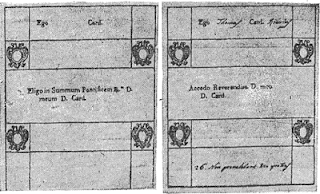 Ego Card.
Eligo in Summum Pontificem R.m D.
meum D. Card.
Ego Card.
Accedo Reverendiss. D. meo
D. Card.
26.